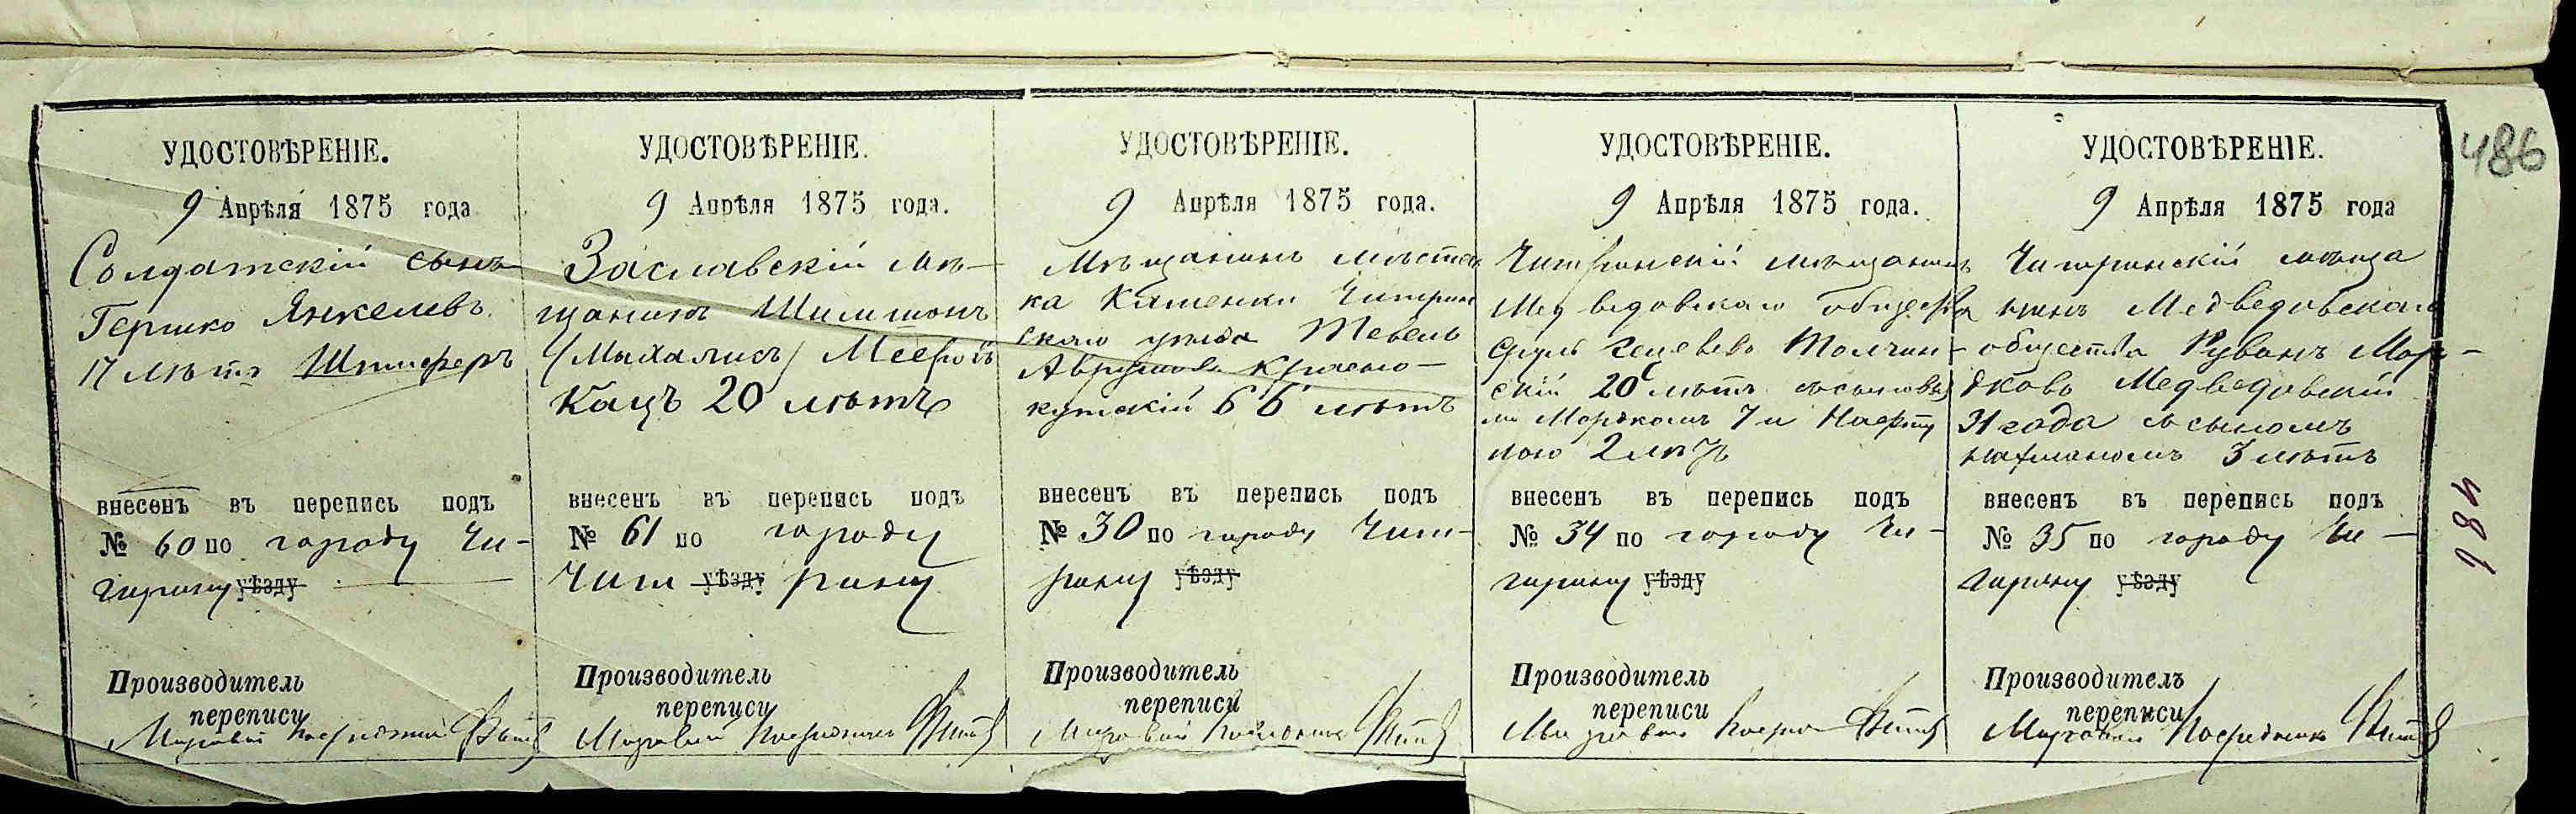 УДОСТОВѢРЕНІЕ.
9 Апрѣля 1875 года
Солдатскій сынъ
Гершко Янкелевъ
17 лѣтъ Шпигеръ
внесенъ въ перепись подъ
№ 60 по городу Чи-
гирину уѣзду
Производитель
переписи
Мировой Посредникъ
УДОСТОВѢРЕНІЕ.
9 Апрѣля 1875 года.
Заславскій мѣ-
щанинъ Шимшонъ
/Махлисъ/ Мееровъ
Кацъ 20 лѣтъ
внесенъ въ перепись подъ
№ 61 по городу
Чиги уѣзду рину
Производитель
переписи
Мировой Посредникъ
УДОСТОВѢРЕНІЕ.
9 Апрѣля 1875 года.
Мѣщанинъ мѣстеч
ка Каменки Чигирин
скаго уѣзда Тевель
Аврумовъ Красно-
кутскій 66 лѣтъ
внесенъ въ перепись подъ
№ 30 по городу Чиги-
рину уѣзду
Производитель
переписи
Мировой Посредникъ
УДОСТОВѢРЕНІЕ.
9 Апрѣля 1875 года.
Чигиринскій мѣщанинъ
Медведовскаго общества
Толчин-
скій 20 лѣтъ съ сыновья
ми Мордкомъ 7 и Нафту
лою 2 лѣтъ
внесенъ въ перепись подъ
№ 34 по городу Чи-
гирину уѣзду
Производитель
переписи
Мировой Посред
УДОСТОВѢРЕНІЕ.
9 Апрѣля 1875 года
Чигиринскій мѣща
нинъ Медведовскаго
общества Рувинъ Мор-
дковъ Медведовскій
31 года съ сыномъ
Нахманомъ 3 лѣтъ
внесенъ въ перепись подъ
№ 35 по городу Чи-
гирину уѣзду
Производитель
переписи
Мировой Посредникъ
486
486